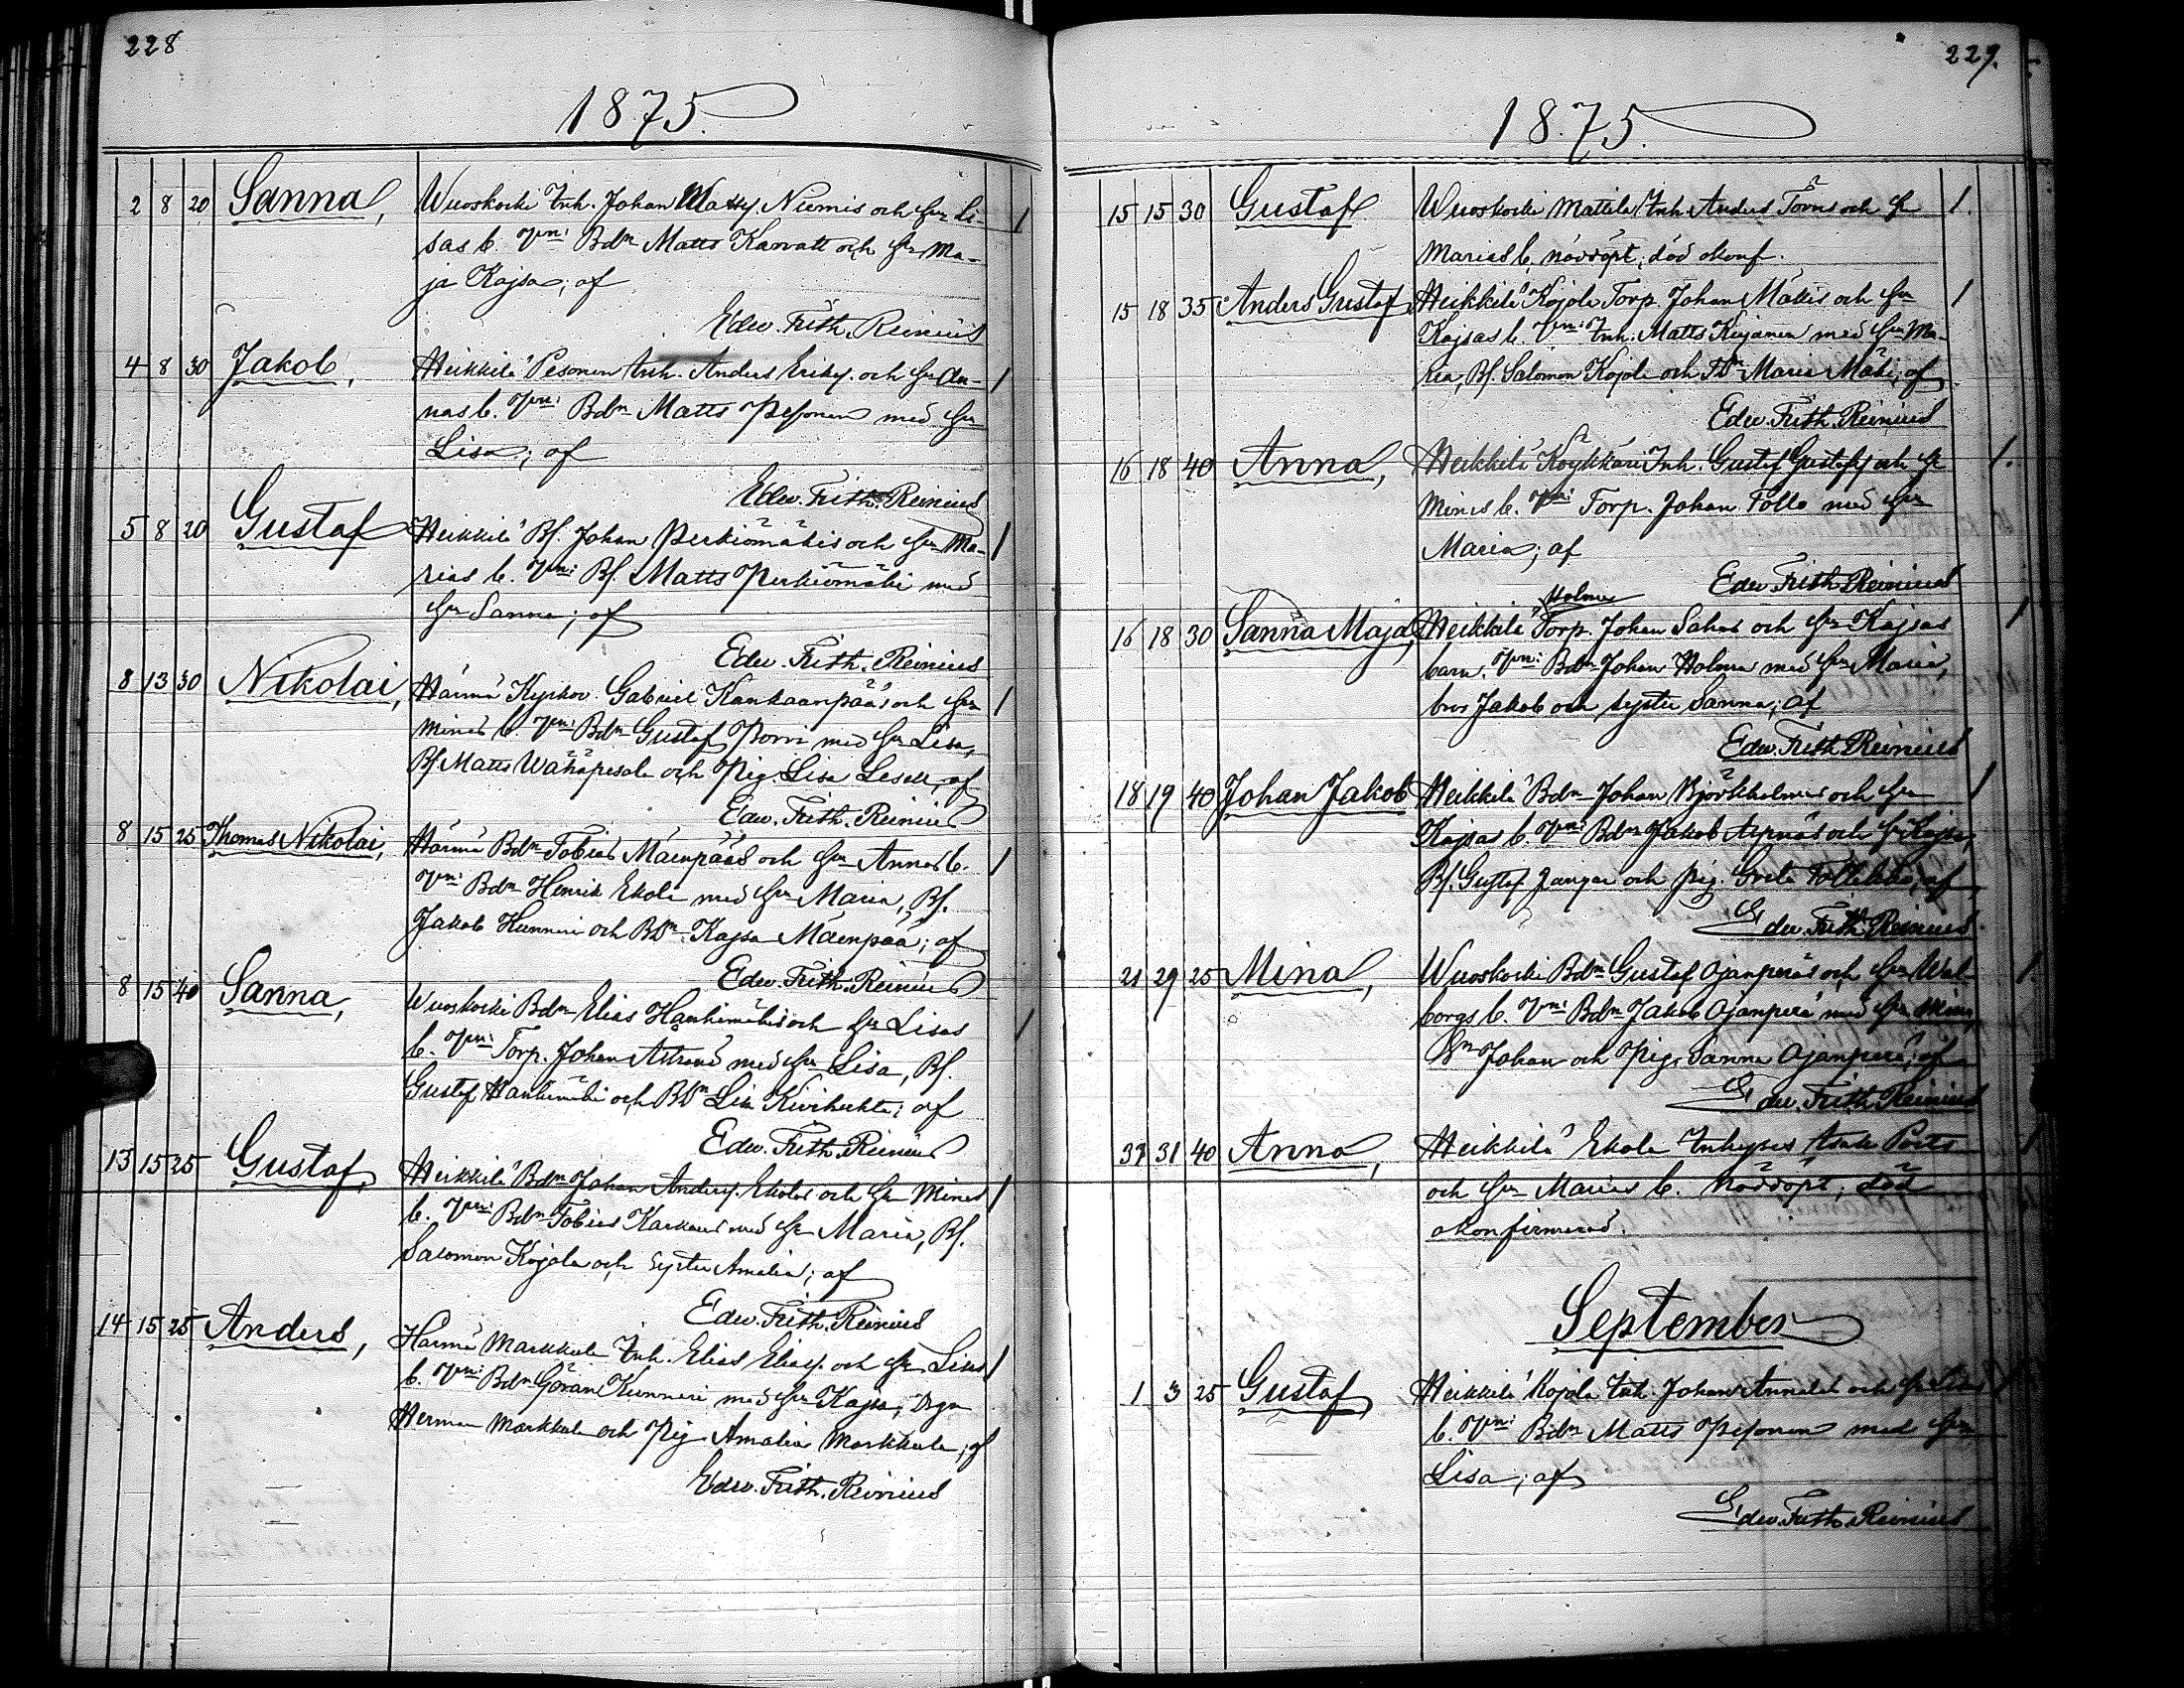 228
1875.
2 8 20 Sanna, Wuoskoski Inh. Johan Niemis och Hu Li-
sas b. Vn: Bdn Matts Karvatt och Hu Ma-
ja Kajsa; af
Edw. Frith. Reinius
4 8 30 Jakob, Heikkilä Pesonen Inh. Anders Eriks. och Hu An-
nas b. Vn: Bdn Matts Pesonen med Hu
Lisa; af
Edw. Frith. Reinius
5 8 20 Gustaf Heikkilä Bs. Johan Perkiömäkis och Hu Ma-
rias b. Vn: Bs. Matts Perkiömäki med
Hu Sanna; af
Edw. Frith. Reinius
8 13 30 Nikolai, Härmä Kyrkov. Gabriel Kankaanpääs och Hu
Minas b. Vn: Bdn Gustaf Porri med Hu Lisa,
Bs Matts Wähäpesola och Pig. Lisa af
Edw. Frith. Reinius
8 15 25 Thomas Nikolai, Härmä Bdn Tobias Mäenpääs och Hu Annas b.
Vn: Bdn Henrik Ekola med Hu Maria, Bs.
Jakob Hunnuri och BDn Kajsa Mäenpää; af
Edw. Frith. Reinius
8 15 40 Sanna, Wuoskoski Bdn Elias Hanhimäkis och Hu Lisas
b. Vn: Torp. Johan Åstrand med Hu Lisa, Bs.
Gustaf Hanhimäki och BDn Lisa Kivihuhta; af
Edw. Frith. Reinius
13 15 25 Gustaf, Heikkilä Bdn Johan Anders. Ekolas och Hu Minas
b. Vn: Bdn Tobias med Hu Maria, Bs.
Salomon Kojola och Syster Amalia; af
Edw. Frith. Reinius
14 15 25 Anders, Härmä Markkula Inh. Elias Elias. och Hu Lisas
b. Vn: Bdn Göran Kunnari med Hu Kajsa, Drgn
Herman Markkula och Pig. Amalia Markkula; af
Edw. Frith. Reinius
229.
1875.
15 15 30 Gustaf Wuoskoski Mattila Inh. Anders Törns och Hu
Marias b. nöddöpt, död okonf.
15 18 35 Anders Gustaf, Heikkilä Kojola Torp. Johan Mäkis och Hu
Kajsas b. Vn: Inh. Matts Kujanen med Hu Ma-
ria, Bs. Salomon Kojola och TDn Maria Mäki; af
Edw. Frith. Reinius
16 18 40 Anna, Heikkilä Köykkäri Inh. Gustaf Gustafs. och Hu
Minas b. Vn: Torp. Johan Follo med Hu
Maria; af
Edw. Frith. Reinius
Holma
16 18 30 Sanna Maja, Heikkilä Torp. Johan Sahas och Hu Kajsas
barn. Vn: Bdn Johan Holma med Hu Maria,
bror Jakob och syster Sanna; af
Edw. Frith. Reinius
18 19 40 Johan Jakob Heikkilä Bdn Johan Björkholmas och Hu
Kajsas b. Vn: Bdn Jakob Aspnäs och Hu Kajsa,
Bs. Gustaf Jangar och Pig. Greta af
Edw. Frith. Reinius
21 29 25 Mina, Wuoskoski Bdn Gustaf Ojanperäs och Hu Wal-
borgs b. Vn: Bdn Jakob Ojanperä med Hu Mina,
Johan och Pig. Sanna Ojanperä; af
Edw. Frith. Reinius
31 40 Anna, Heikkilä Ekola Inhyses Isak Ports
och Hu Marias b. Nöddöpt; död
okonfirmerad.
September
1 3 25 Gustaf, Heikkilä Kojola Inh. Johan Annalas och Hu Lisas
b. Vn: Bdn Matts Pesonen med Hu
Lisa; af
Edw. Frith. Reinius